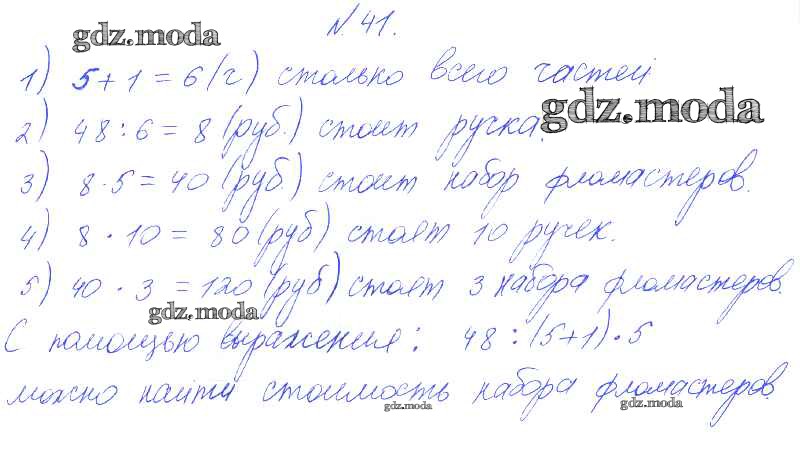 № 41.
gdz.moda
1) 5+1=6(г) столько всего частей
gdz.moda
2) 48:6=8 (руб.) стоит ручка.
3) 8·5=40 (руб.) стоит набор фломастеров.
4) 8·10=80(руб) стоят 10 ручек.
5) 40·3=120(руб) стоят 3 набора фломастеров.
gdz.moda
С помощью выражения: 48:(5+1)·5
можно найти стоимость набора фломастеров.
gdz.moda
gdz.moda